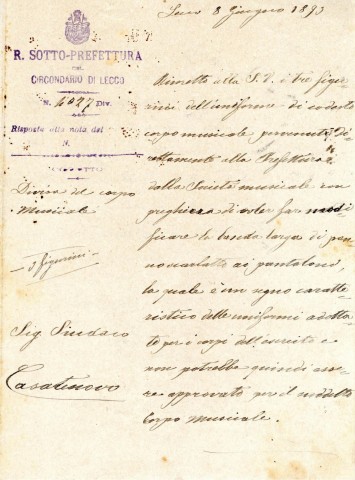 Lecco 8 Giugno 1893
R. SOTTO-PREFETTURA
DEL
CIRCONDARIO DI LECCO
N. 4027 Div.
Risposta alla nota del
N.
Divisa del corpo
musicale
3 figurini
Sig Sindaco
Casatenovo
Rimetto alla S. V. i tre figu-
rini dell'uniforme di codesto
corpo musicale pervenuti di-
rettamente alla Prefettura
dalla Società musicale con
preghiera di voler far modi-
ficare la banda larga di pan-
no scarlatto ai pantaloni,
la quale è un segno caratte-
ristico delle uniformi adotta-
te per i corpi dell'esercito e
non potrebbe quindi esse-
re approvato per il suddetto
Corpo musicale.